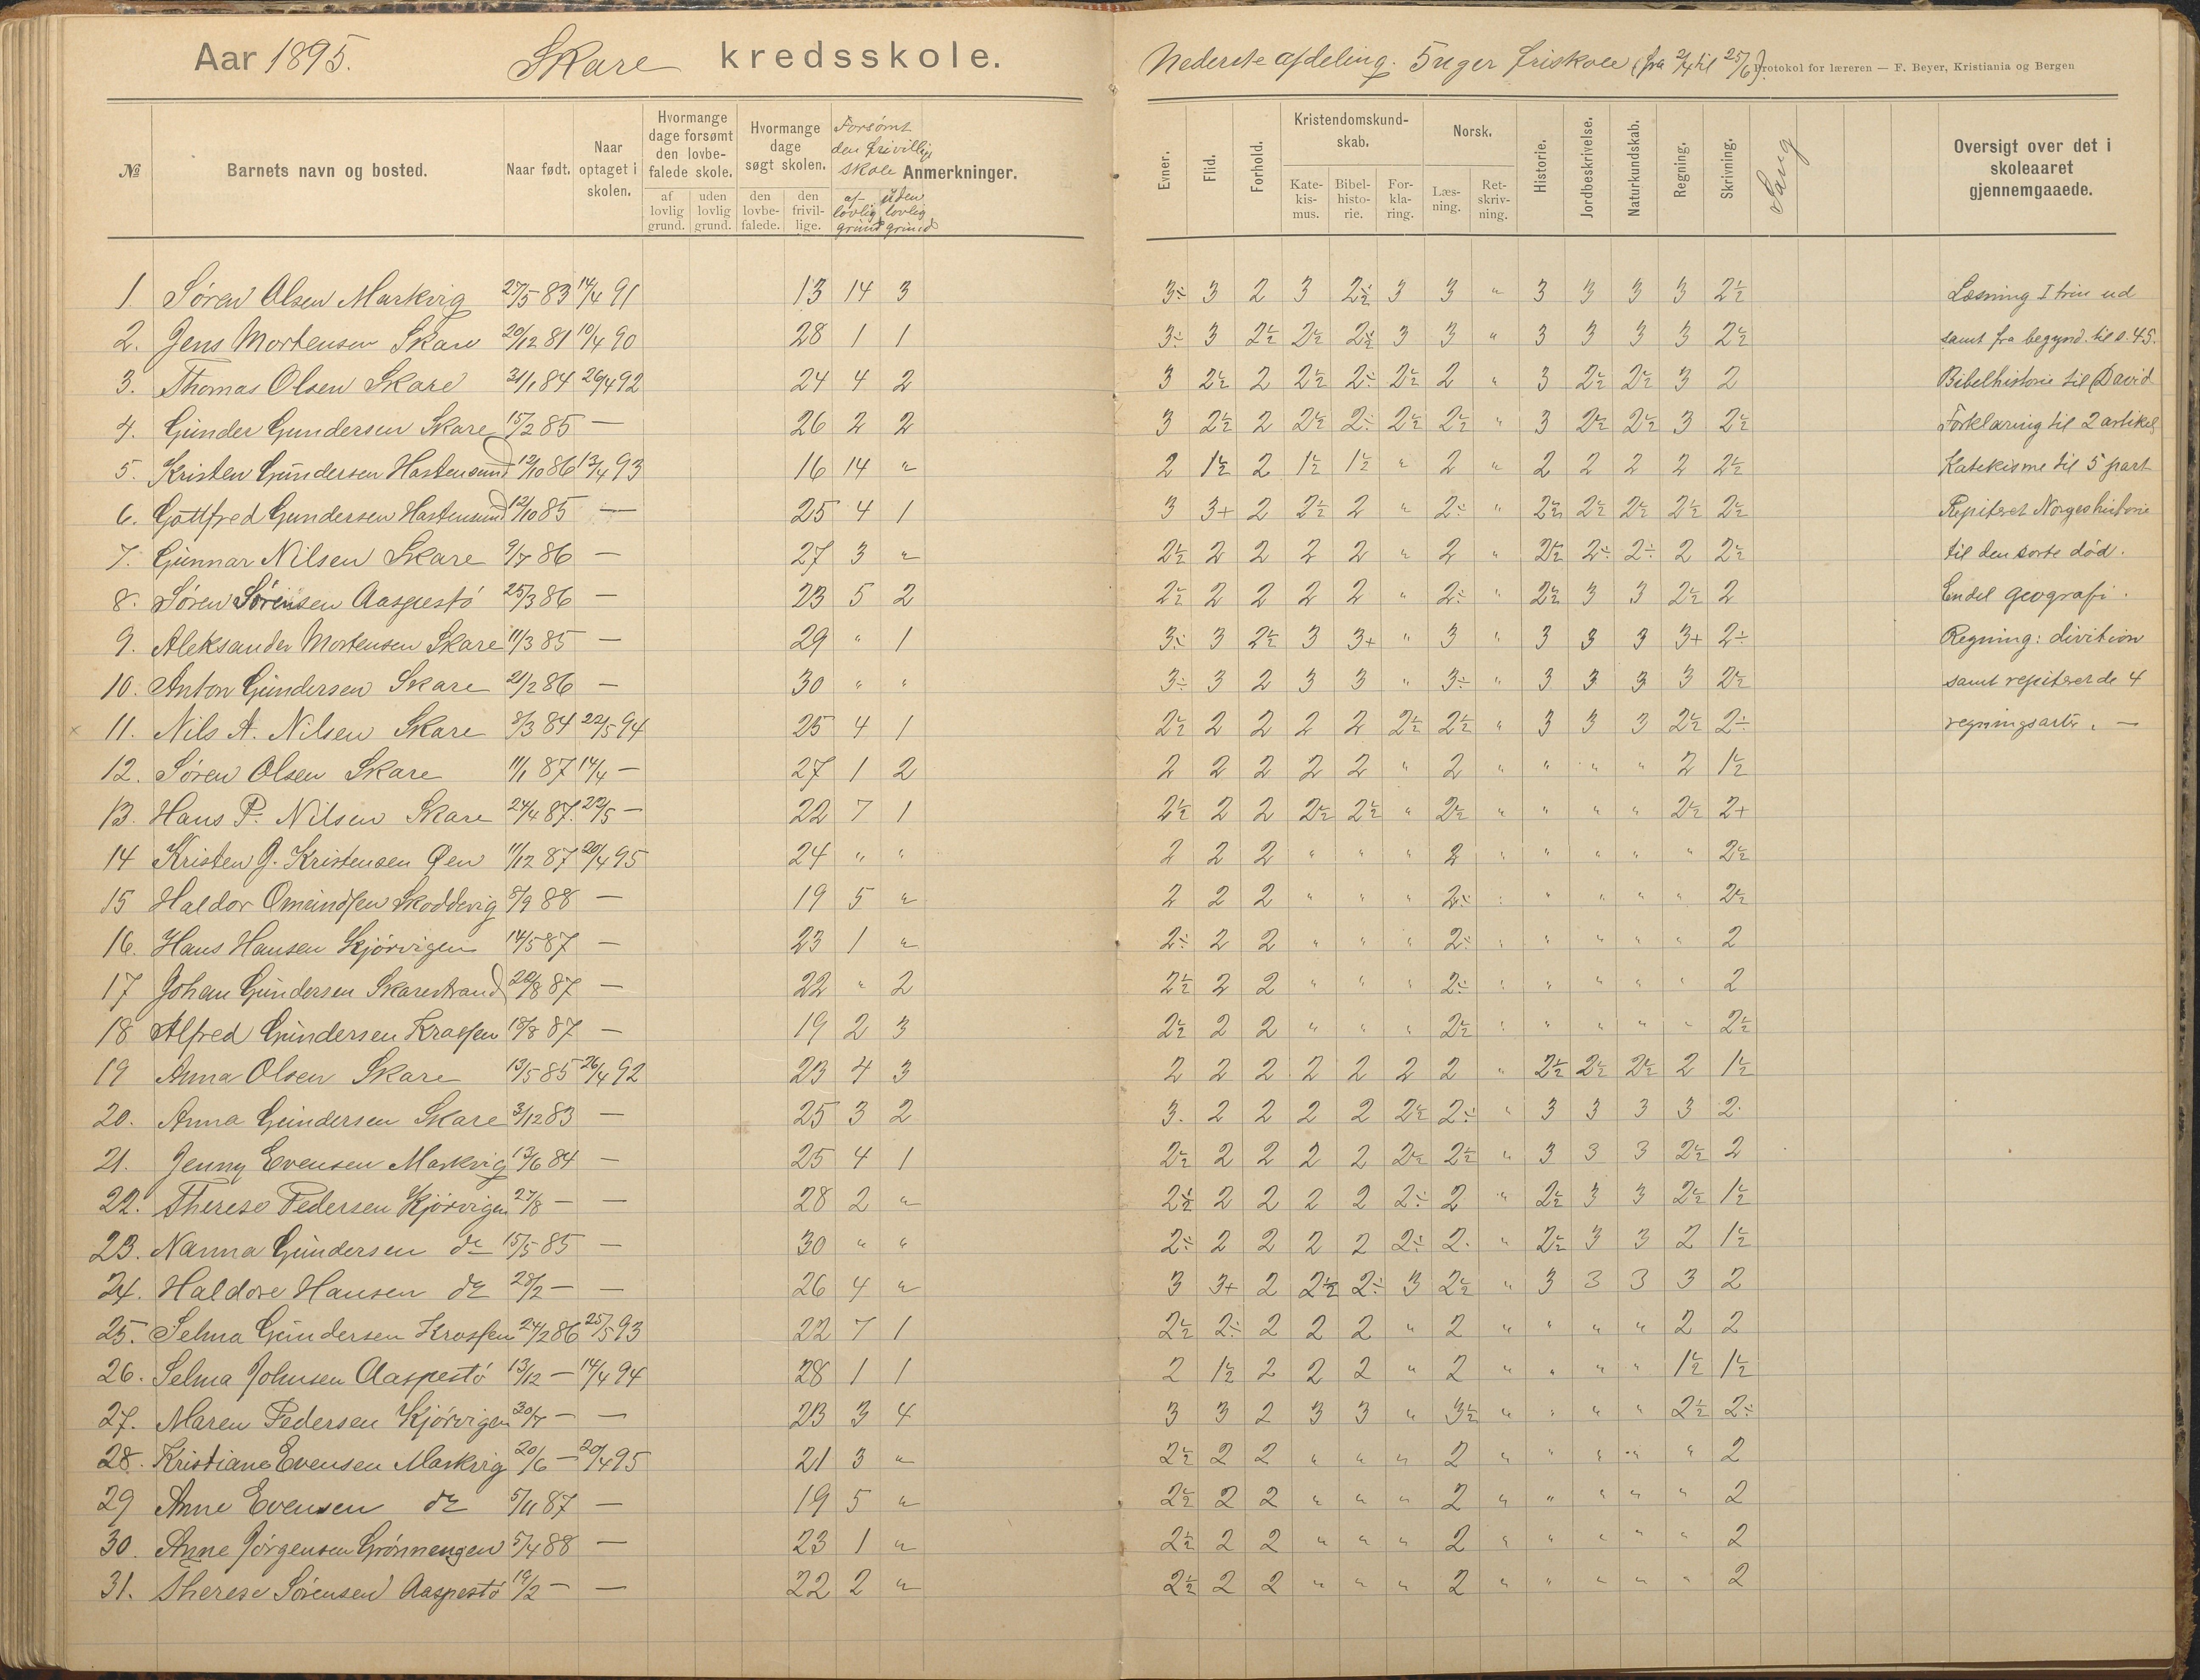 Aar 1895. Skare kredsskole.
Nederste afdeling. 5 uger friskole (fra 2/4 til 25/6).
Protokol for læreren — F. Beyer, Kristiania og Bergen
№ Barnets navn og bosted. Naar født. Naar optaget i skolen. Hvormange dage forsømt den lovbefalede skole. af lovlig grund. uden lovlig grund. Hvormange dage søgt skolen. den lovbefalede. den frivillige. Forsømt den frivillige skole af lovlig grund uden lovlig grund Anmerkninger.
Evner. Flid. Forhold. Kristendomskundskab. Katekismus. Bibelhistorie. Forklaring. Norsk. Læsning. Retskrivning. Historie. Jordbeskrivelse. Naturkundskab. Regning. Skrivning. Sang Oversigt over det i skoleaaret gjennemgaaede.
1 Søren Olsen Markvig 27/5 83 14/4 91 13 14 3 3÷ 3 2 3 2½ 3 3 " 3 3 3 3 2½ Læsning I trin ud
2. Jens Mortensen Skare 20/12 81 10/4 90 28 1 1 3÷ 3 2½ 2½ 2½ 3 3 " 3 3 3 3 2½ samt fra begynd. til s. 45.
3. Thomas Olsen Skare 31/1 84 26/4 92 24 4 2 3 2½ 2 2½ 2÷ 2½ 2 " 3 2½ 2½ 3 2 Bibelhistorie til David
4. Gunder Gundersen Skare 15/2 85 — 26 2 2 3 2½ 2 2½ 2÷ 2½ 2½ " 3 2½ 2½ 3 2½ Forklaring til 2 artikel
5. Kristen Gundersen Hastensund 12/10 86 13/4 93 16 14 " 2 1½ 2 1½ 1½ " 2 " 2 2 2 2 2½ Katekisme til 5 part
6. Gottfred Gundersen Hastensund 12/10 85 — 25 4 1 3 3+ 2 2½ 2 " 2÷ " 2½ 2½ 2½ 2½ 2½ Repiteret Norgeshistorie
7. Gunnar Nilsen Skare 9/7 86 — 27 3 " 2½ 2 2 2 2 " 2 " 2½ 2÷ 2÷ 2 2½ til den sorte død.
8. Søren Sørensen Aaspestø 25/3 86 — 23 5 2 2½ 2 2 2 2 " 2÷ " 2½ 3 3 2½ 2 Endel geografi.
9. Aleksander Mortensen Skare 11/3 85 — 29 " 1 3÷ 3 2½ 3 3+ " 3 " 3 3 3 3+ 2÷ Regning: divition
10. Anton Gundersen Skare 21/2 86 — 30 " " 3÷ 3 2 3 3 " 3÷ " 3 3 3 3 2½ samt repiteret de 4
x 11. Nils A. Nilsen Skare 8/3 84 22/5 94 25 4 1 2½ 2 2 2 2 2½ 2½ " 3 3 3 2½ 2÷ regningsarter. —
12. Søren Olsen Skare 11/1 87 14/4 — 27 1 2 2 2 2 2 2 " 2 " " " " 2 1½
13. Hans P. Nilsen Skare 24/4 87. 22/5 — 22 7 1 2½ 2 2 2½ 2½ " 2½ " " " " 2½ 2+
14 Kristen G. Kristensen Øen 11/12 87 20/4 95 24 " " 2 2 2 " " " 2 " " " " " 2½
15 Haldor Omundsen Skoddevig 8/9 88 — 19 5 " 2 2 2 " " " 2÷ " " " " " 2½
16. Hans Hansen Kjørvigen 14/5 87 — 23 1 " 2÷ 2 2 " " " 2÷ " " " " " 2
17 Johan Gundersen Skarestrand 20/8 87 — 22 " 2 2½ 2 2 " " " 2÷ " " " " " 2
18 Alfred Gundersen Krossen 18/8 87 — 19 2 3 2½ 2 2 " " " 2½ " " " " " 2½
19 Anna Olsen Skare 13/5 85 26/4 92 23 4 3 2 2 2 2 2 2 2 " 2½ 2½ 2½ 2 1½
20. Anna Gundersen Skare 3/12 83 — 25 3 2 3. 2 2 2 2 2½ 2÷ " 3 3 3 3 2.
21. Jenny Evensen Markvig 13/6 84 — 25 4 1 2½ 2 2 2 2 2½ 2½ " 3 3 3 2½ 2
22. Therese Pedersen Kjørvigen 27/8 — — 28 2 " 2½ 2 2 2 2 2÷ 2 " 2½ 3 3 2½ 1½
23. Nanna Gundersen do 15/5 85 — 30 " " 2÷ 2 2 2 2 2÷ 2. " 2½ 3 3 2 1½
24. Haldore Hansen do 28/2 — — 26 4 " 3 3+ 2 2½ 2÷ 3 2½ " 3 3 3 3 2
25. Selma Gundersen Krossen 24/2 86 25/5 93 22 7 1 2½ 2÷ 2 2 2 " 2 " " " " 2 2
26. Selma Johnsen Aaspestø 13/12 — 14/4 94 28 1 1 2 1½ 2 2 2 " 2 " " " " 1½ 1½
27. Maren Pedersen Kjørvigen 30/7 — — 23 3 4 3 3 2 3 3 " 3½ " " " " 2½ 2÷
28. Kristiane Evensen Markvig 20/6 — 20/4 95 21 3 " 2½ 2 2 " " " 2 " " " " " 2
29 Anne Evensen do 5/11 87 — 19 5 " 2½ 2 2 " " " 2 " " " " " 2
30. Anne Jørgensen Grønnengen 5/4 88 — 23 1 " 2½ 2 2 " " " 2 " " " " " 2
31. Therese Sørensen Aaspestø 19/2 — — 22 2 " 2½ 2 2 " " " 2 " " " " " 2